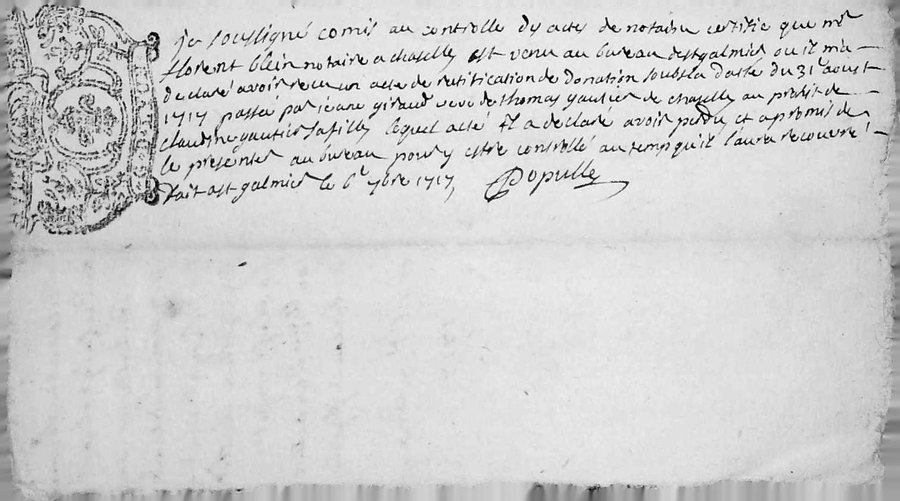 Je soussigné comis au controlle des actes de notaire certifie que me
florent blein notaire a chaselle est venu au bureau destgalmier ou il ma
declaré avoir receu un acte de ratification de donation soubs la datte du 31e aoust
1717 passé par jeane giraud veuve de thomas gautier de chaselle au profit de
claudine gautier sa fille lequel acte il a declaré avoir perdu et a promis de
le presenter au bureau pour y estre controllé au temps qu'il l'aura recouvré
fait a st galmier le 6e 7bre 1717 Populle